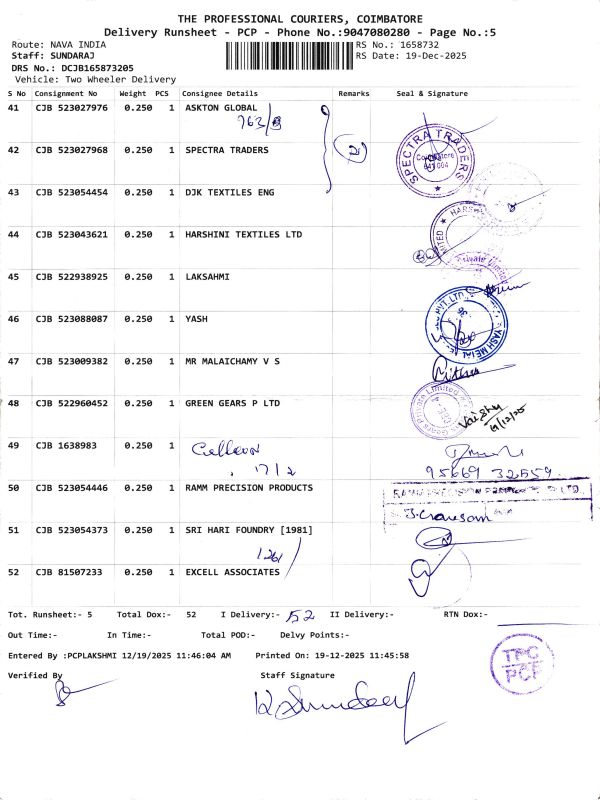 THE PROFESSIONAL COURIERS, COIMBATORE
Delivery Runsheet - PCP - Phone No.:9047080280 - Page No.:5
Route: NAVA INDIA
RS No.: 1658732
Staff: SUNDARAJ
RS Date: 19-Dec-2025
DRS No.: DCJB165873205
Vehicle: Two Wheeler Delivery
S No Consignment No Weight PCS Consignee Details Remarks Seal & Signature
41 CJB 523027976 0.250 1 ASKTON GLOBAL
763/B
42 CJB 523027968 0.250 1 SPECTRA TRADERS
SPECTRA TRADERS
Coimbatore
641 004
43 CJB 523054454 0.250 1 DJK TEXTILES ENG
44 CJB 523043621 0.250 1 HARSHINI TEXTILES LTD
45 CJB 522938925 0.250 1 LAKSAHMI
46 CJB 523088087 0.250 1 YASH
PVT. LTD.
YASH METAL
47 CJB 523009382 0.250 1 MR MALAICHAMY V S
48 CJB 522960452 0.250 1 GREEN GEARS P LTD
19/12/25
49 CJB 1638983 0.250 1
17/2
95669 32559.
50 CJB 523054446 0.250 1 RAMM PRECISION PRODUCTS
51 CJB 523054373 0.250 1 SRI HARI FOUNDRY [1981]
126/
52 CJB 81507233 0.250 1 EXCELL ASSOCIATES
Tot. Runsheet:- 5 Total Dox:- 52 I Delivery:- 52 II Delivery:- RTN Dox:-
Out Time:- In Time:- Total POD:- Delvy Points:-
Entered By :PCPLAKSHMI 12/19/2025 11:46:04 AM Printed On: 19-12-2025 11:45:58
Verified By Staff Signature
TPC
PCP